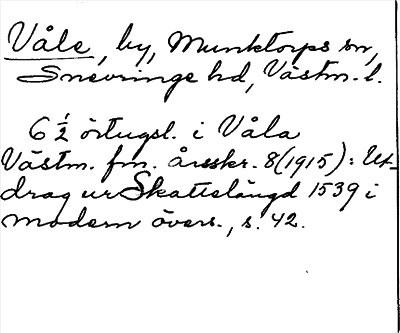 Våle, by, Munktorps sn,
Snevringe hd, Västm. l.
6 ½ örtugsl. i Våla
Västm. fm. årsskr. 8 (1915): Ut-
drag ur Skattelängd 1539 i
modern övers., s. 42.